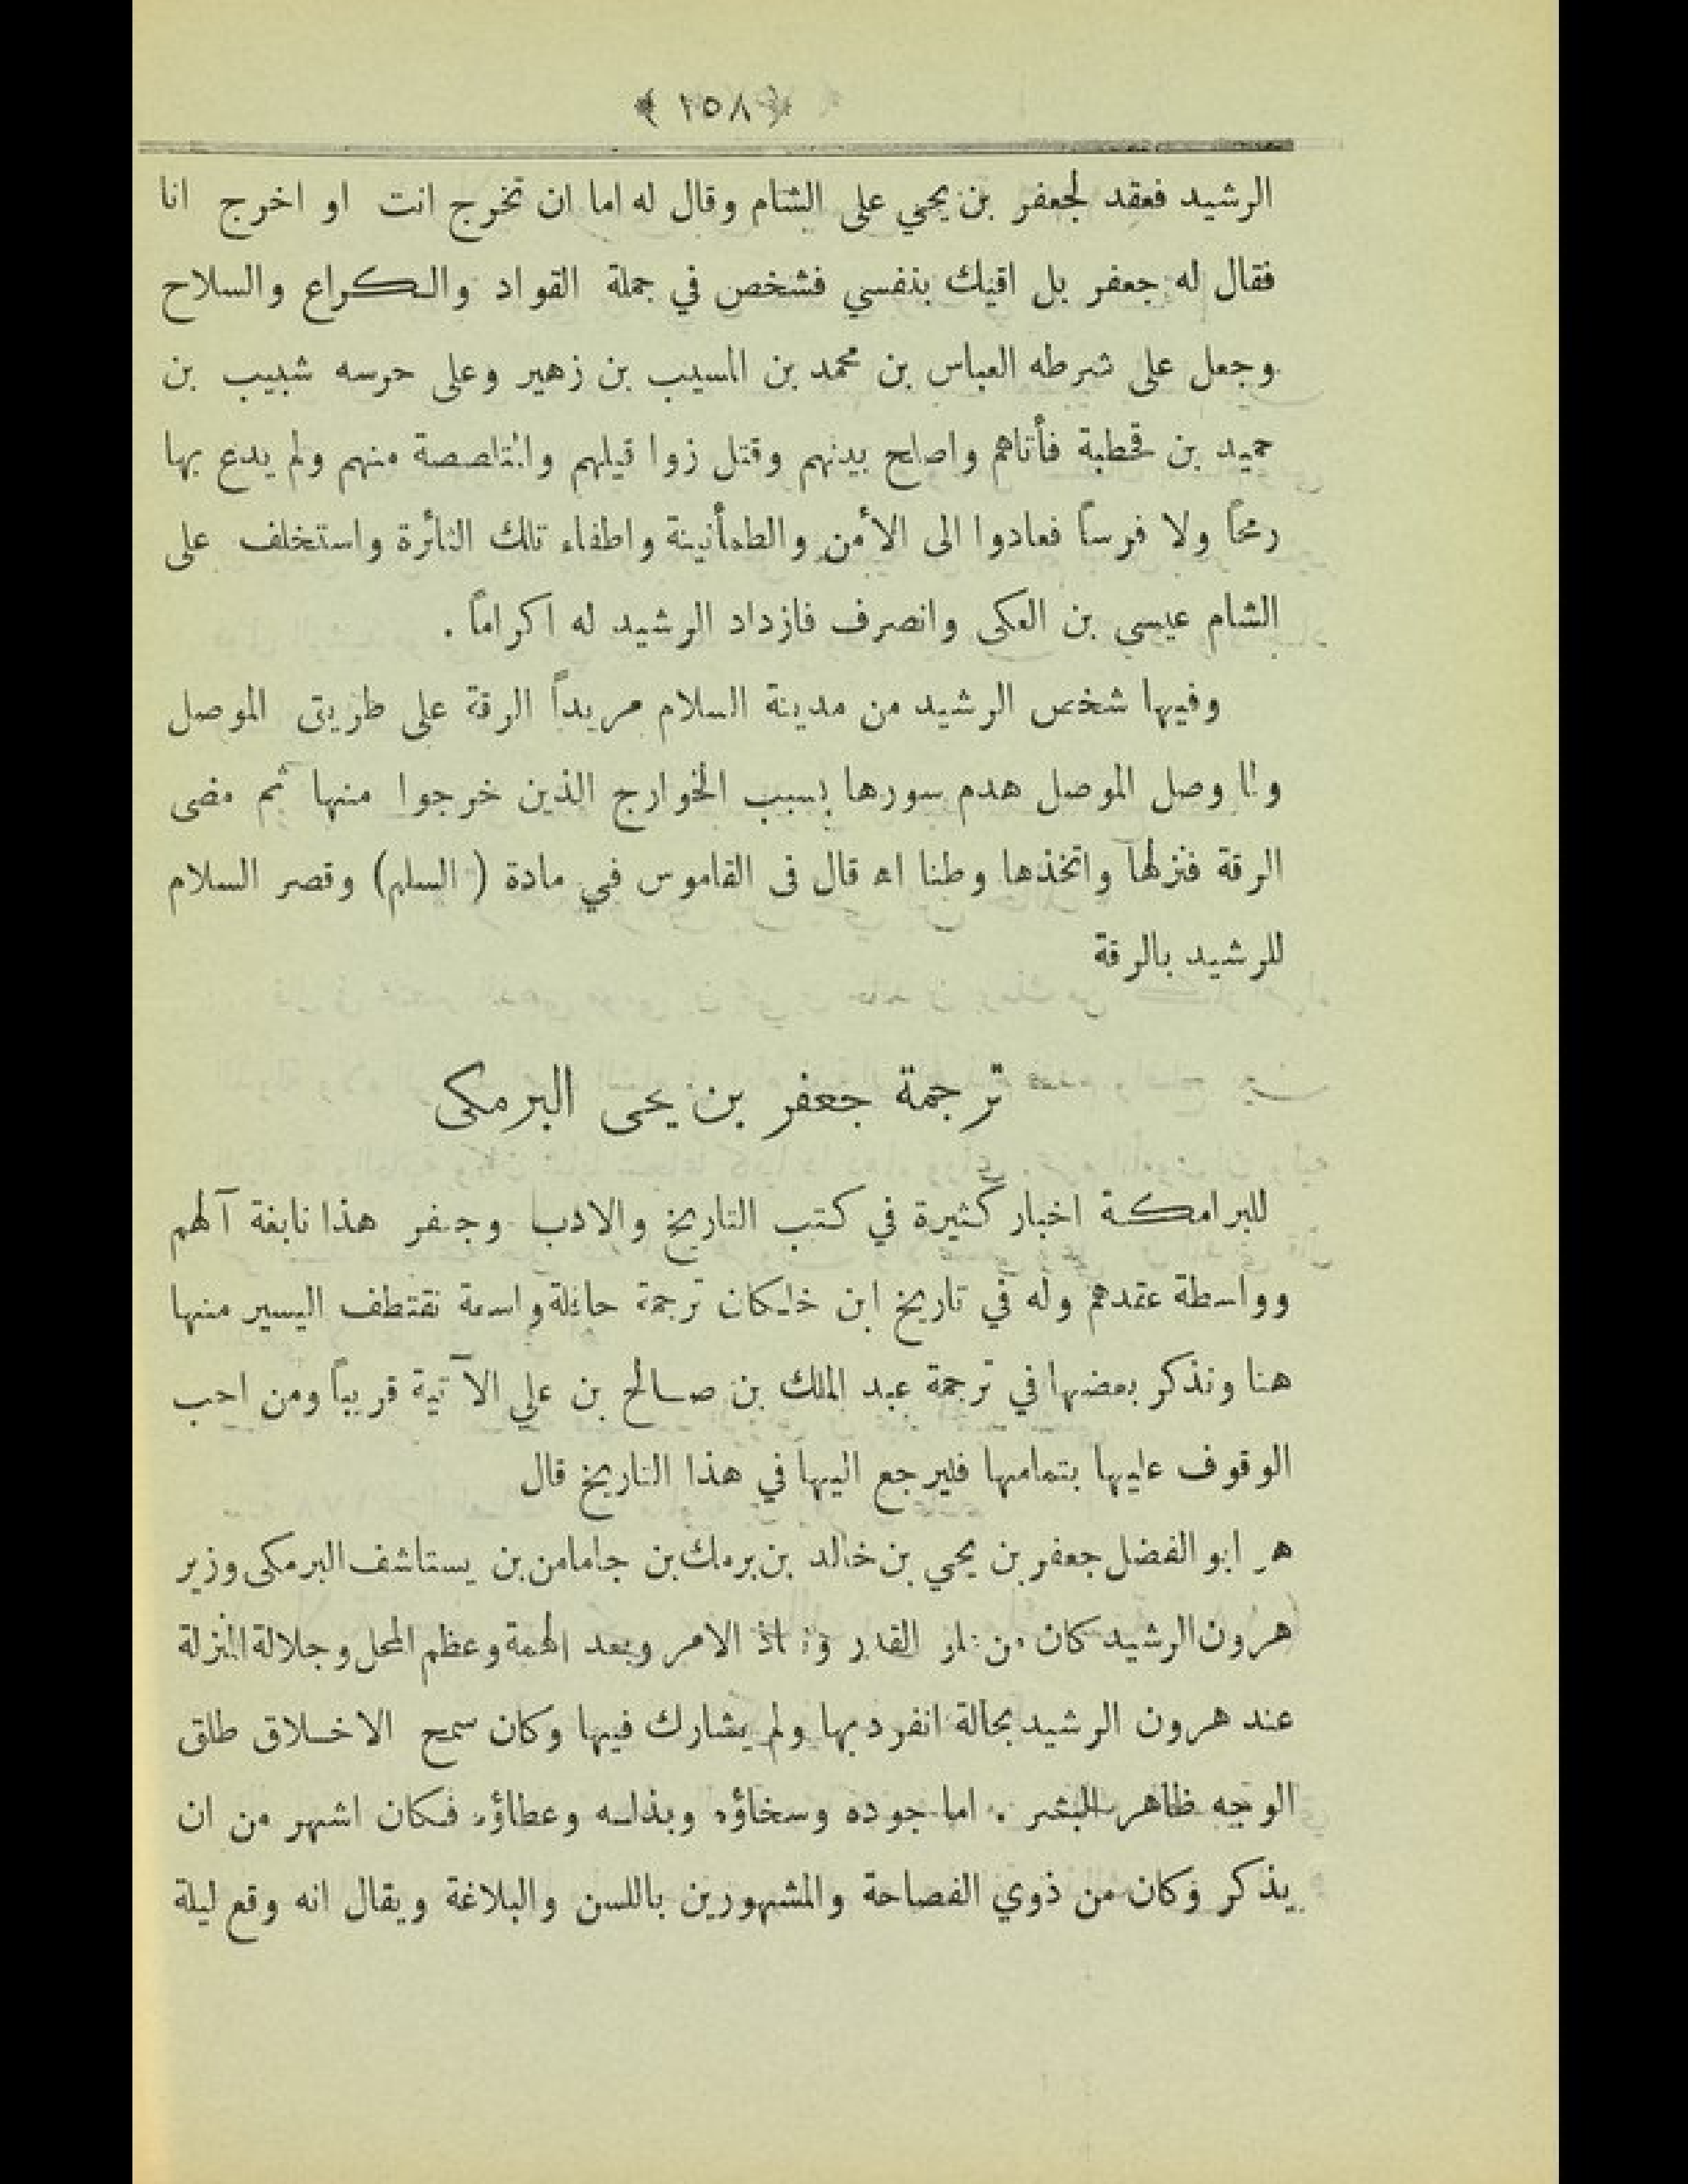 ﴿ ١٥٨ ﴾
الرشيد فعقد لجعفر بن يحيي على الشام وقال له اما ان تخرج انت او اخرج انا
فقال له جعفر بل اقيك بنفسي فشخص في جملة القواد والكراع والسلاح
وجعل على شرطه العباس بن محمد بن المسيب بن زهير وعلى حرسه شبيب بن
حميد بن قحطبة فأتاهم واصلح بينهم وقتل زواقيلهم والمتلصصة منهم ولم يدع بها
رمحاً ولا فرساً فعادوا الى الأمن والطمأنينة واطفاء تلك النائرة واستخلف على
الشام عيسي بن العكى وانصرف فازداد الرشيد له اكراماً .
وفيها شخص الرشيد من مدينة السلام مريداً الرقة على طريق الموصل
ولما وصل الموصل هدم سورها بسبب الخوارج الذين خرجوا منها ثم مضى
الرقة فنزلها واتخذها وطنا اه قال فى القاموس في مادة ( السلم) وقصر السلام
للرشيد بالرقة
ترجمة جعفر بن يحى البرمكى
للبرامكة اخبار كثيرة في كتب التاريخ والادب وجعفر هذا نابغة آلهم
وواسطة عقدهم وله في تاريخ ابن خلكان ترجمة حافلة واسعة نقتطف اليسير منها
هنا ونذكر بعضها في ترجمة عبد الملك بن صالح بن علي الآتية قريباً ومن احب
الوقوف عليها بتمامها فليرجع اليها في هذا التاريخ قال
هو ابو الفضل جعفر بن يحي بن خالد بن برمك بن جاماس بن يستاشف البرمكى وزير
هرون الرشيد كان من علو القدر ونفاذ الامر وبعد الهمة وعظم المحل وجلالة المنزلة
عند هرون الرشيد بحالة انفرد بها ولم يشارك فيها وكان سمح الاخلاق طلق
الوجه ظاهر البشر . اما جوده وسخاؤه وبذله وعطاؤه فكان اشهر من ان
يذكر وكان من ذوي الفصاحة والمشهورين باللسن والبلاغة ويقال انه وقع ليلة